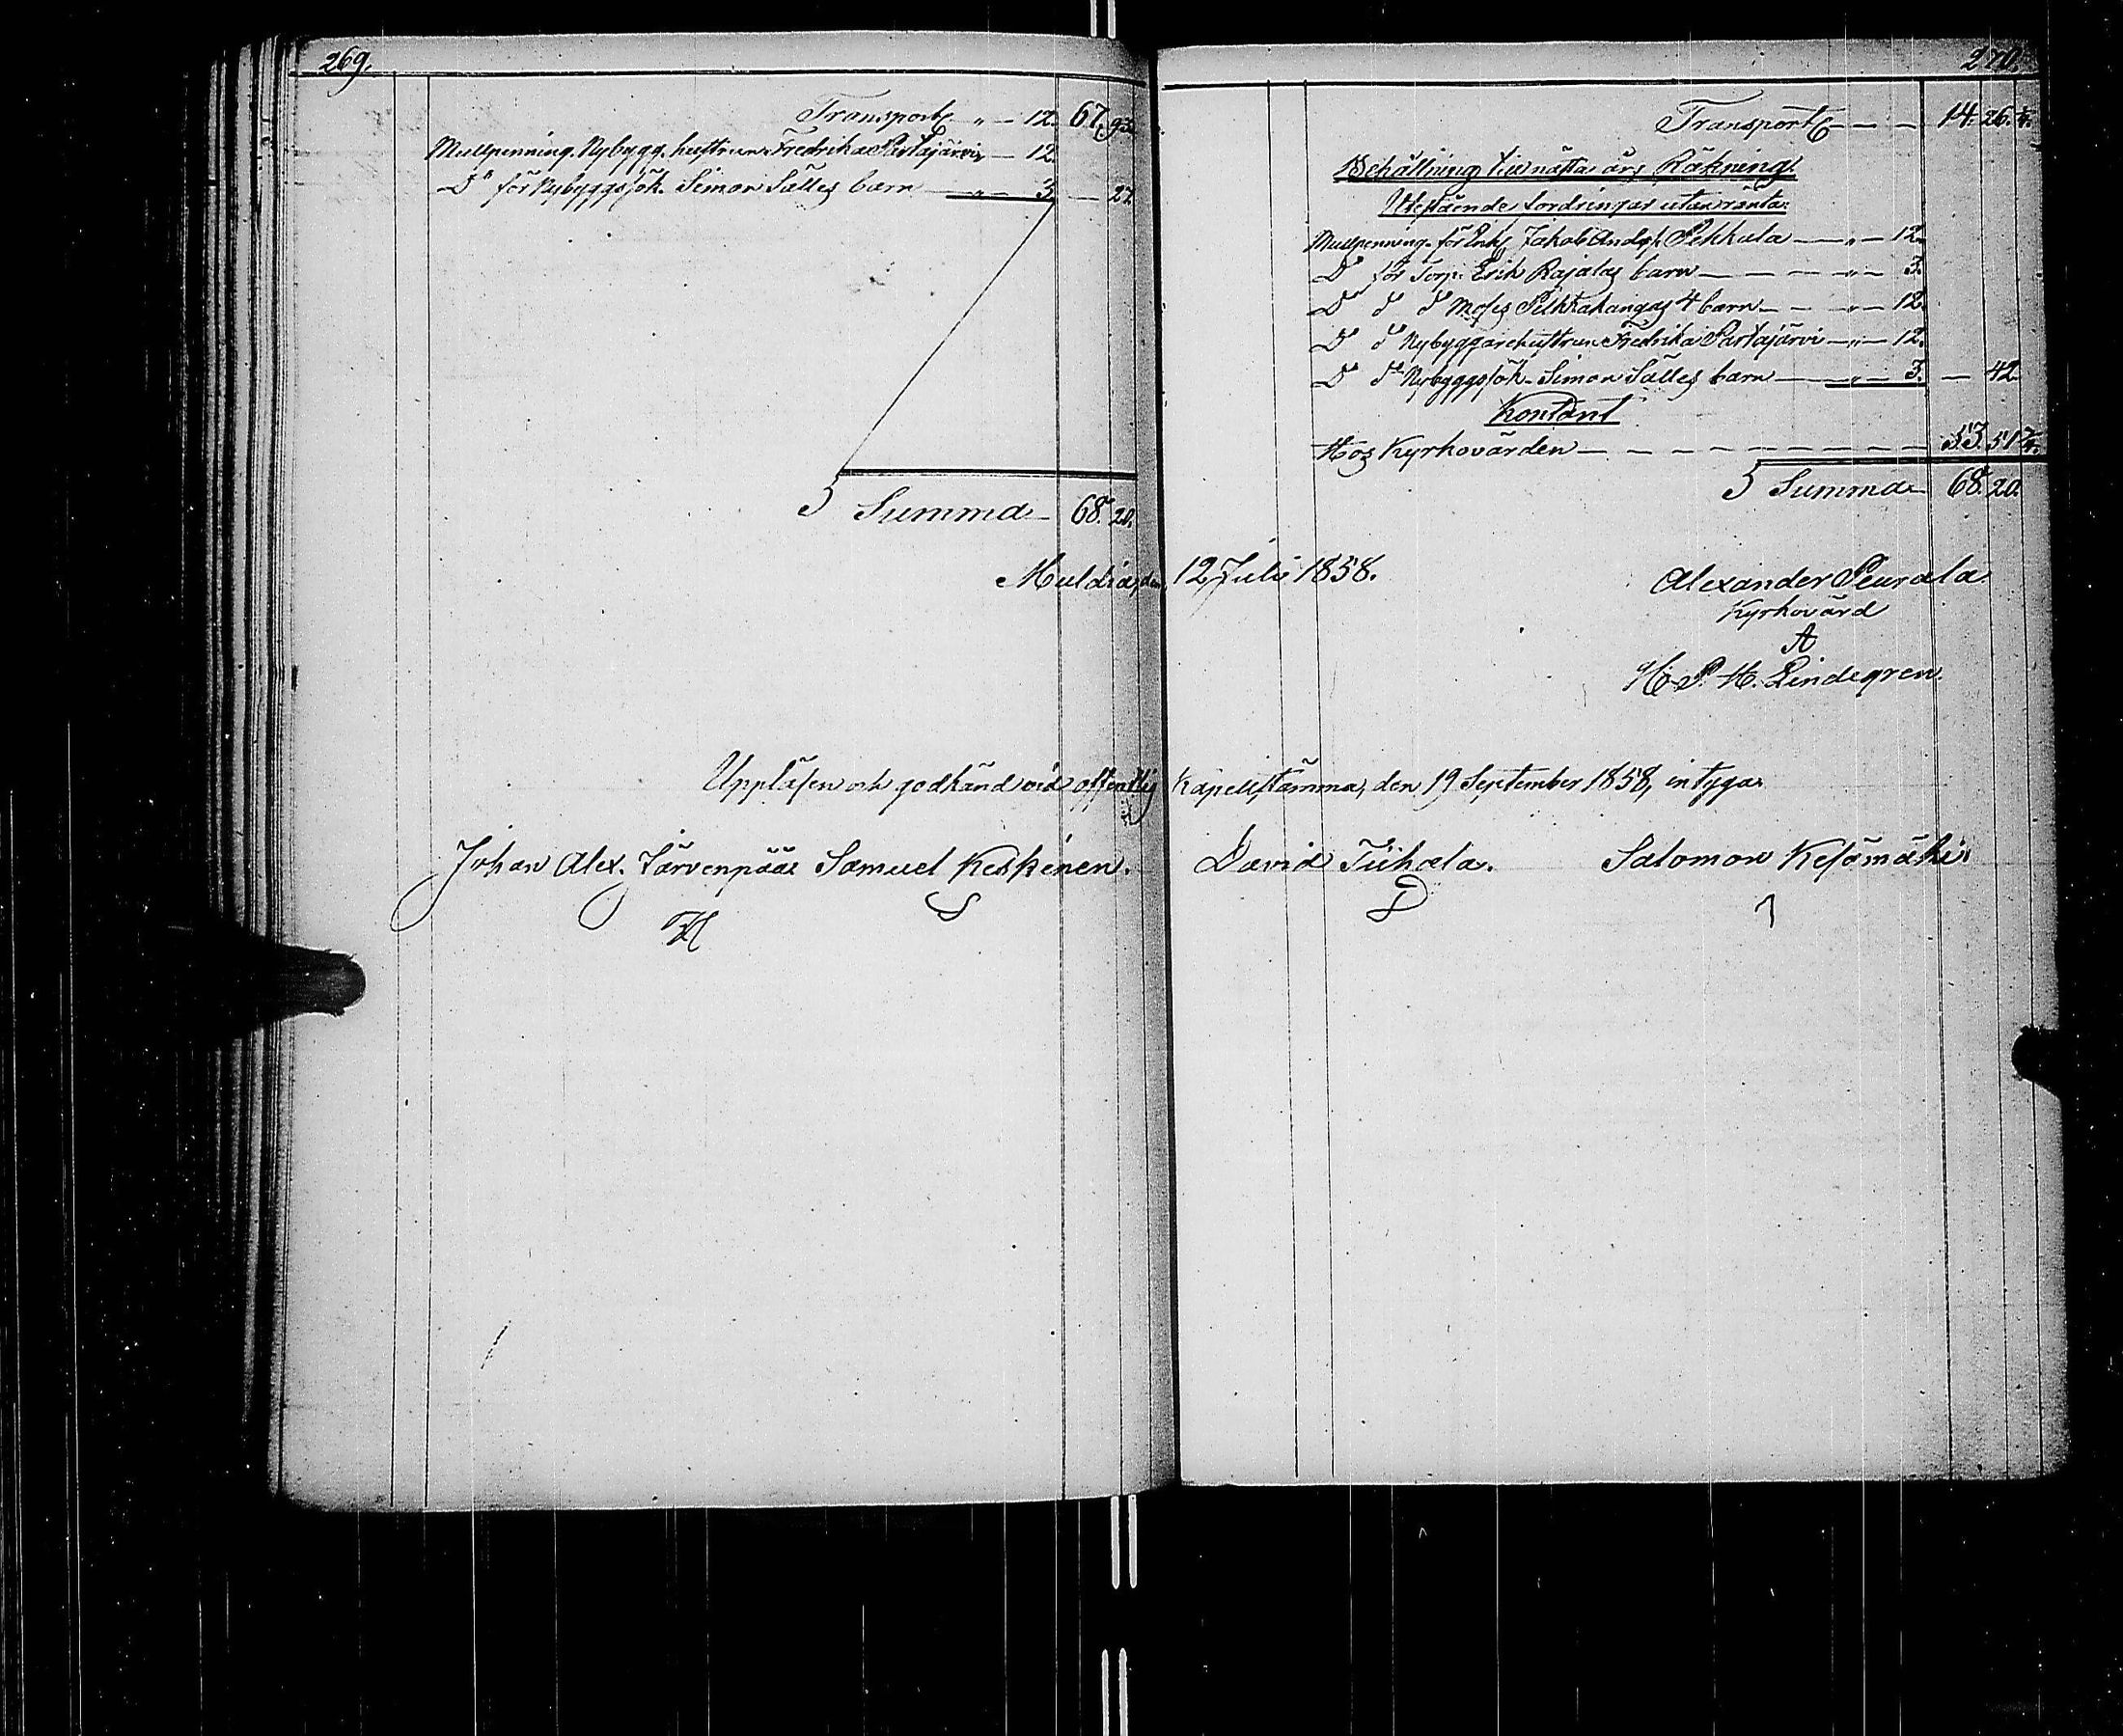 269.
Transport " — 12. 67. 93.
Mullpenning. Nybygg. hustrun Fredrika Partajärvi — 12.
D° för Nybyggssök. Simon Salles barn — " — 3. — 27.
S Summa — 68. 20.
270.
Transport — — — 14. 26. ¼.
Behållning till nästa års Räkning.
Utestående fordringar utan ränta:
Mullpenning. för Enkl. Jakob Ands. Pekkala — " — 12.
D° för Torp. Erik Rajalas barn — — — " — 3.
D° d° d° Moses Pelkkakangas 4 barn — — " — 12.
D° d° Nybyggarehustrun Fredrika Partajärvi — " — 12.
D° d° Nybyggssök. Simon Salles barn — " — 3. — 42
Kontant
Hos Kyrkovärden — — — — — — — 53. 51 ¾.
S Summa — 68. 20.
Muldia, den 12 Juli 1858.
Alexander Peurala
Kyrkovärd
A
H. P. H. Lindegren.
Uppläsen och godkänd vid offentlig Kapellstämma, den 19 September 1858, intygar
Johan Alex. Järvenpää Samuel Keskinen. David Tiihala. Salomon Kesämäki.